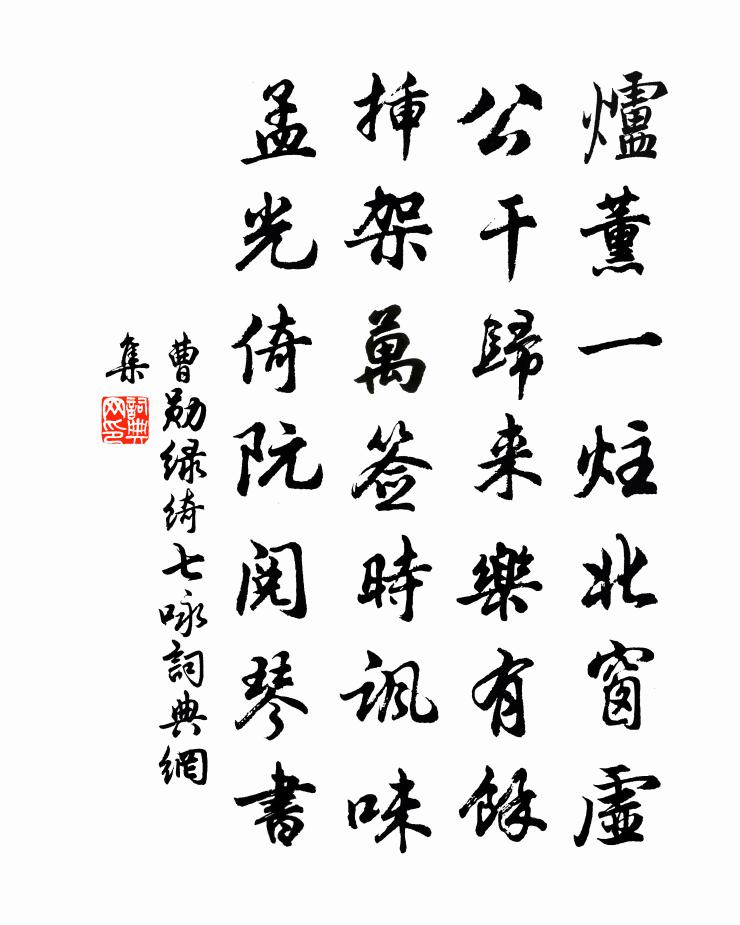 爐薰一炷北窗虛
公干歸来樂有餘
挿架萬签時諷味
孟光倚阮閱琴書
曹勋绿绮七咏詞典網
集
詞典
网印